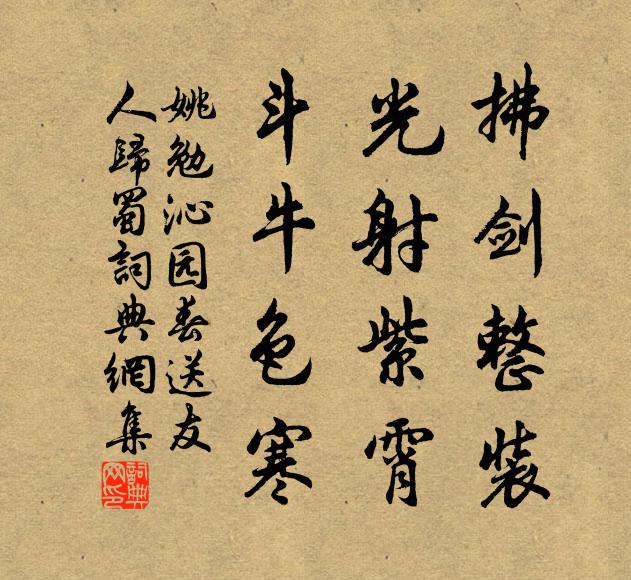 拂剑整装
光射紫霄
斗牛色寒
姚勉沁园春送友
人歸蜀詞典網集
詞典网印